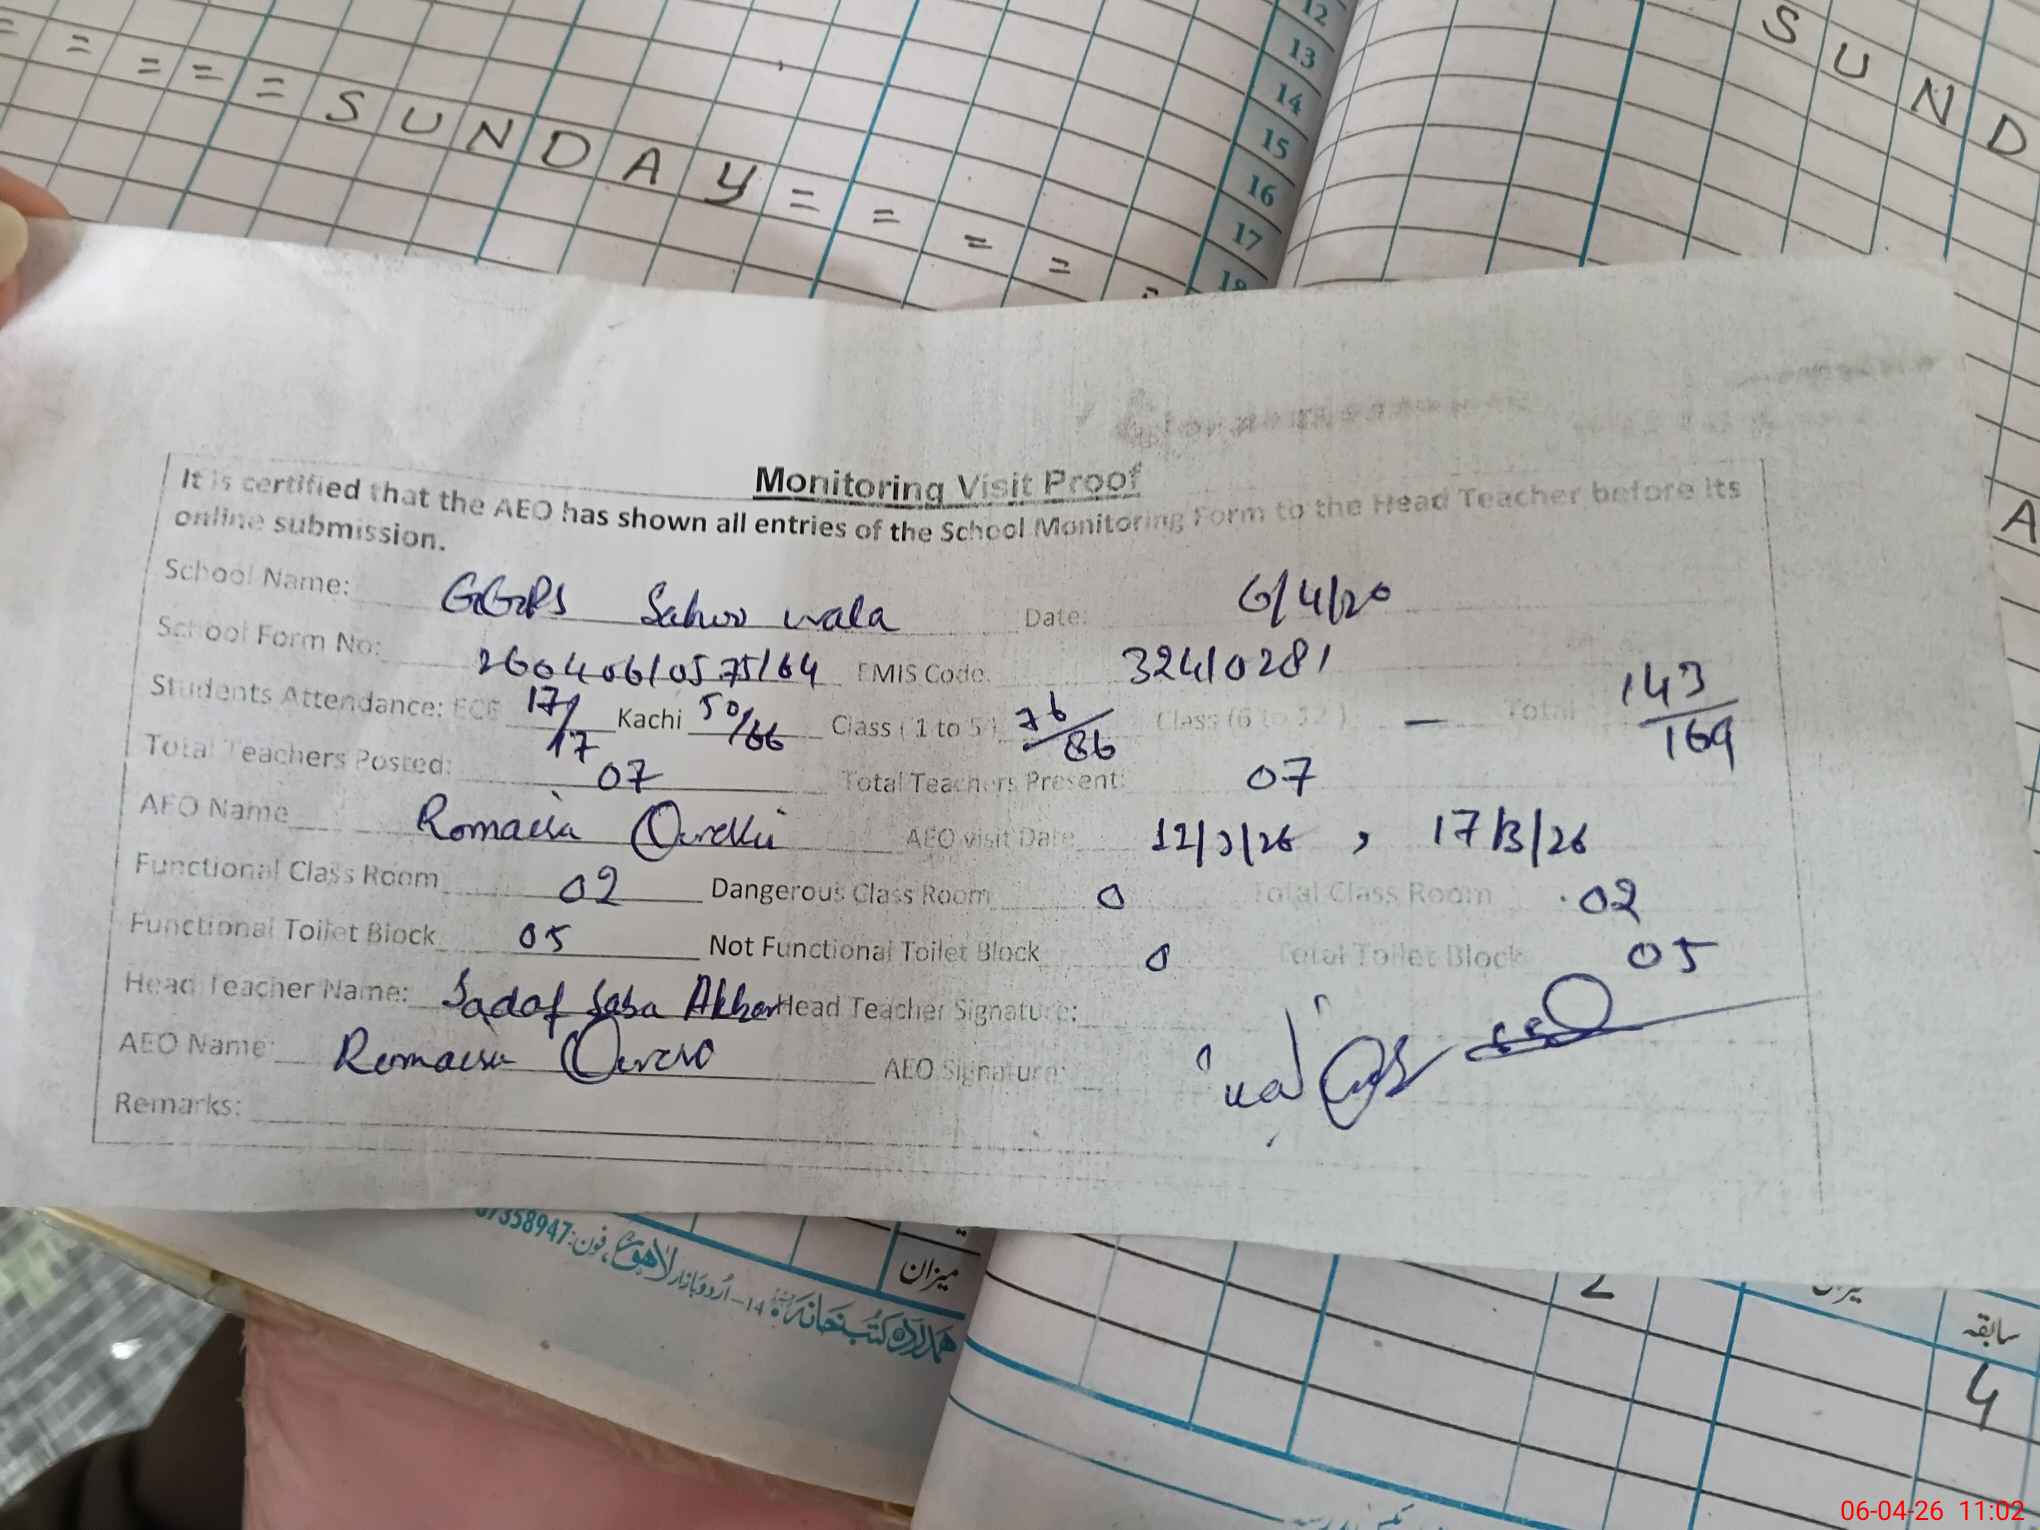 = = = = = S U N D A Y = = = =
12
13
14
15
16
17
18
S U N D
A
Monitoring Visit Proof
It is certified that the AEO has shown all entries of the School Monitoring Form to the Head Teacher before its
online submission.
School Name: GGPS Sahoo wala Date: 6/4/20
School Form No: 26040610575164 EMIS Code. 32410281
Students Attendance: ECE 17/17 Kachi 50/66 Class ( 1 to 5 ) 76/86 Class (6 to 12 ) — Total 143/169
Total Teachers Posted: 07 Total Teachers Present: 07
AEO Name Romaisa AEO visit Date 12/3/26 , 17/3/26
Functional Class Room 02 Dangerous Class Room 0 Total Class Room 02
Functional Toilet Block 05 Not Functional Toilet Block 0 Total Toilet Block 05
Head Teacher Name: Sadaf Saba Akbar Head Teacher Signature:
AEO Name: Romaisa AEO Signature:
Remarks:
میزان
ہمدرد کتب خانہ 14-اُردو بازار لاہور، فون: 37358947
2
میزان
سابقہ
4
06-04-26 11:02